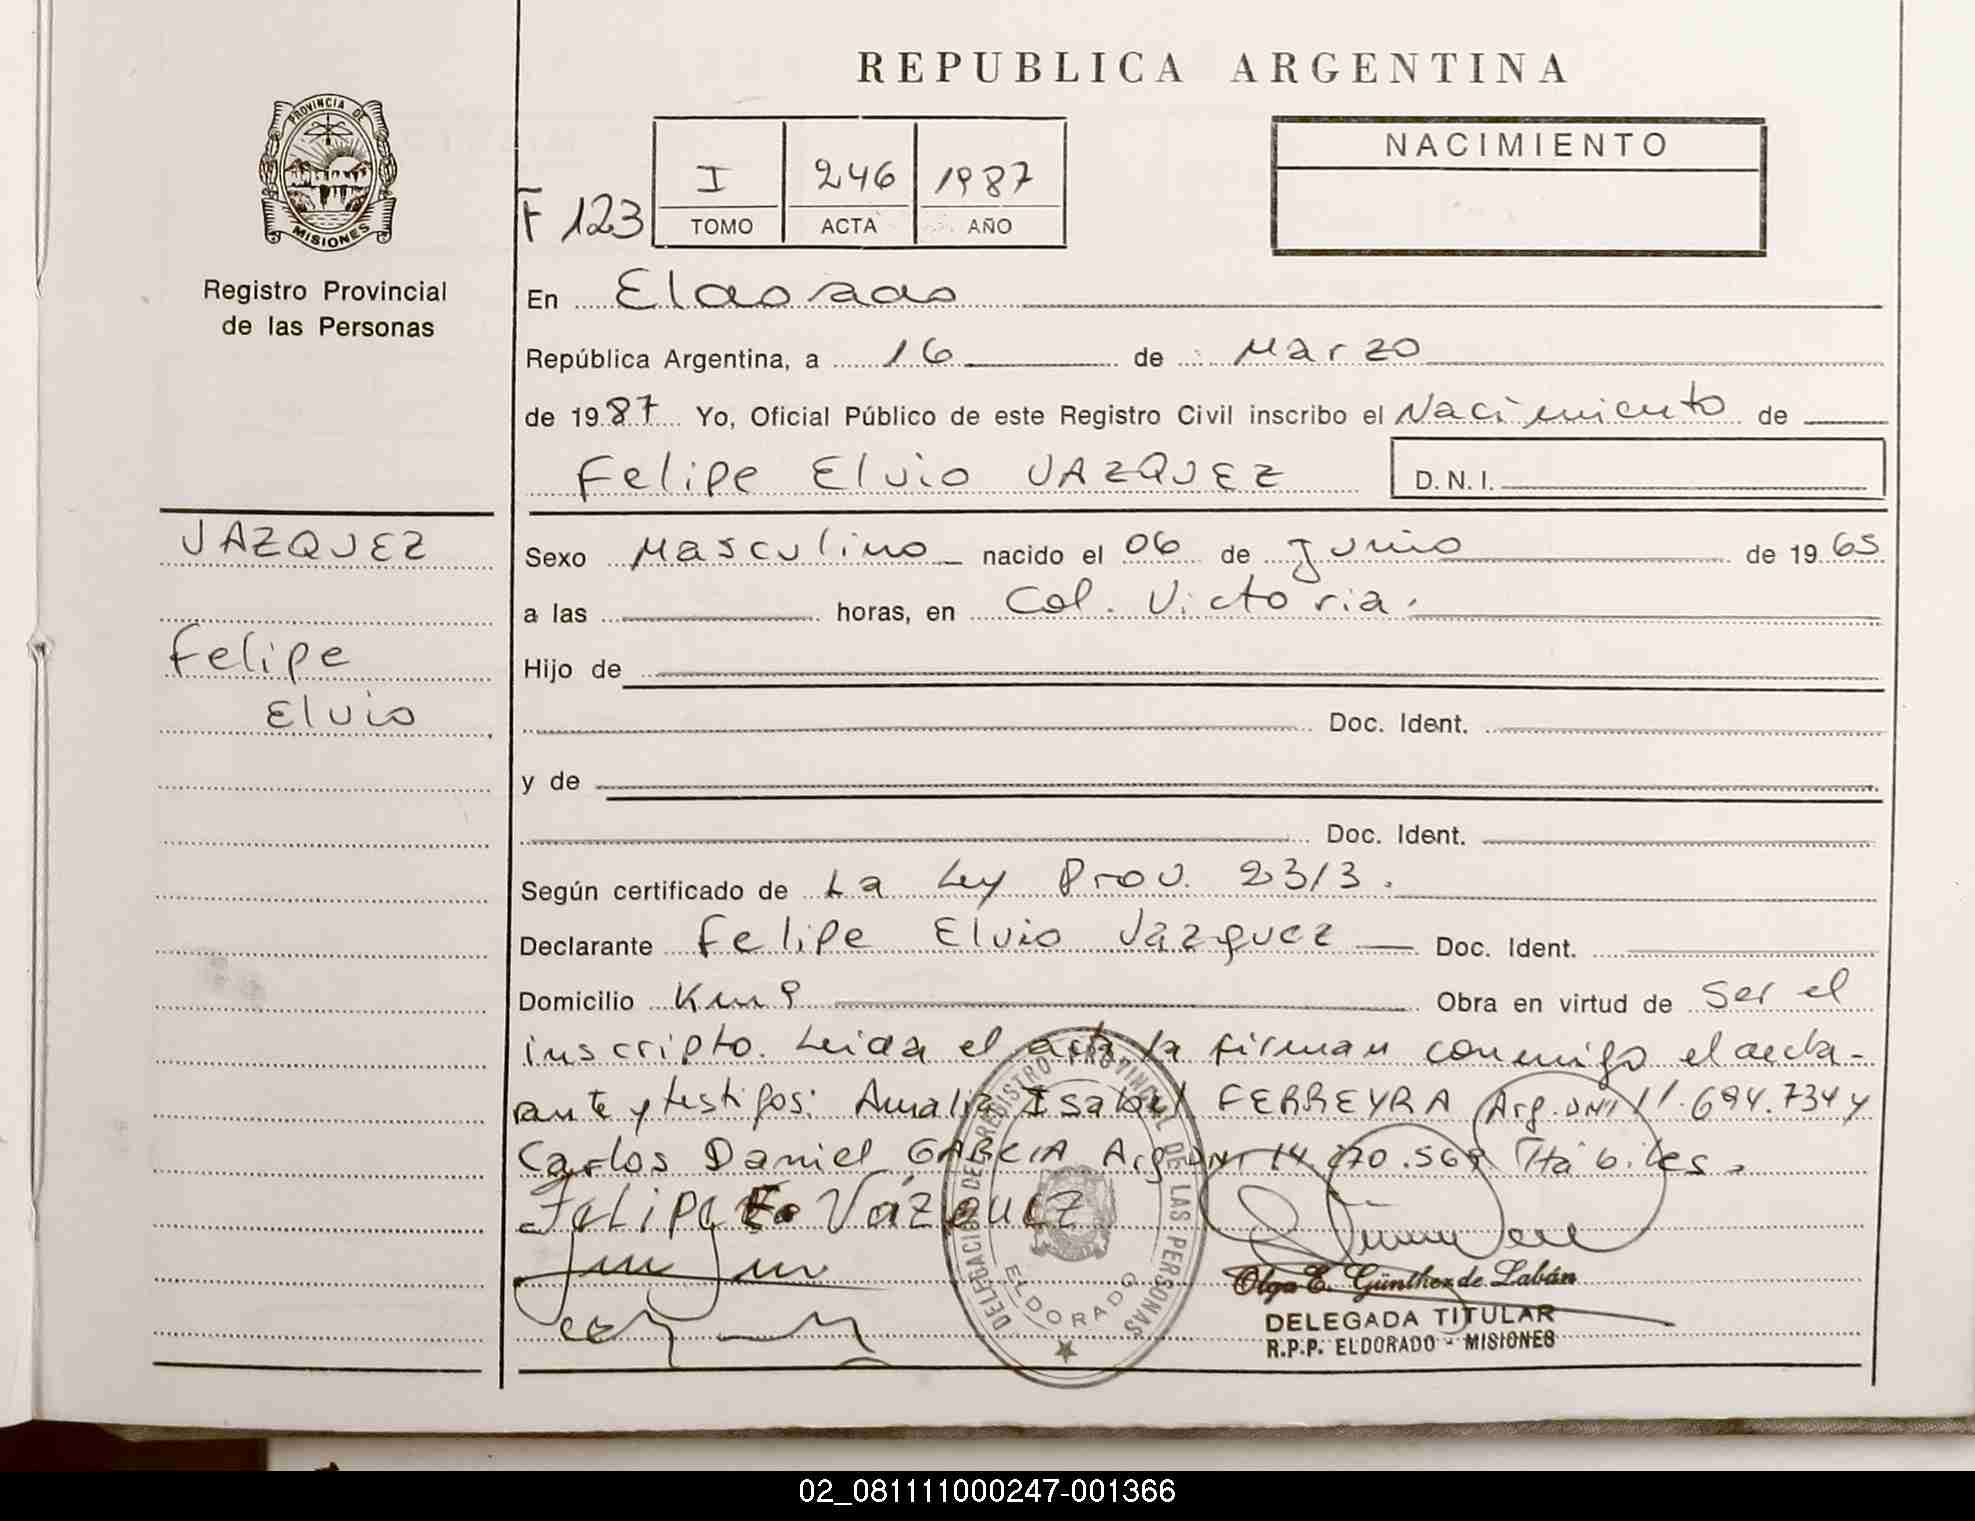 REPUBLICA ARGENTINA
PROVINCIA DE
MISIONES
Registro Provincial
de las Personas
F 123
I 246 1987
TOMO ACTA AÑO
NACIMIENTO
En Eldorado
República Argentina, a 16 de Marzo
de 1987 Yo, Oficial Público de este Registro Civil inscribo el Nacimiento de
Felipe Elvio VAZQUEZ D.N.I.
VAZQUEZ
Felipe
Elvio
Sexo Masculino nacido el 06 de Junio de 1965
a las horas, en Col. Victoria.
Hijo de
Doc. Ident.
y de
Doc. Ident.
Según certificado de La Ley Prov. 2313.
Declarante Felipe Elvio Vázquez Doc. Ident.
Domicilio Km 9 Obra en virtud de Ser el
inscripto. Leida el acta la firman conmigo el decla-
rante y testigos: Amalia Isabel FERREYRA Arg. DNI 11.694.734 y
Carlos Daniel GARCIA Arg. DNI 14.270.569 Hábiles.
Felipe E. Vázquez
DELEGACION DE REGISTRO PROVINCIAL DE LAS PERSONAS
ELDORADO
Olga E. Günther de Labán
DELEGADA TITULAR
R.P.P. ELDORADO - MISIONES
02_081111000247-001366